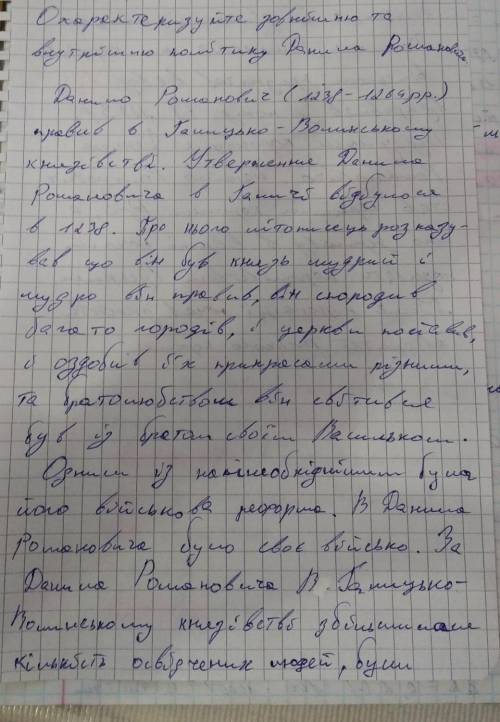 Охарактеризуйте зовнішню та
внутрішню політику Данила Романовича
Данило Романович (1238-1264рр.)
правив в Галицько-Волинському
князівстві. Утвердження Данила
Романовича в Галичі відбулося
в 1238. Про нього літописець розказу-
вав що він був князь мудрий і
мудро він правив, він спорудив
багато городів, і церкви поставив,
і оздобив їх прикрасами різними,
та братолюбством він світився
був із братом своїм Васильком.
Одним із найнеобхіднішим була
його військова реформа. В Данила
Романовича було своє військо. За
Данила Романовича В Галицько-
Волинському князівстві збільшилася
кількість освідчених людей, були